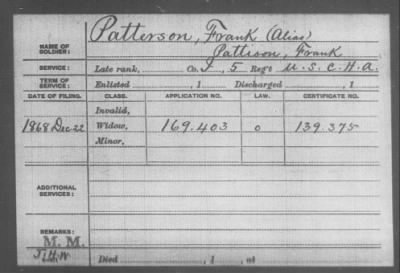 Patterson, Frank (Alias)
NAME OF SOLDIER: Pattison, Frank
SERVICE: Late rank, Co. I, 5 Reg't U.S.C.H.A.
TERM OF SERVICE: Enlisted , 1 Discharged , 1
DATE OF FILING. CLASS. APPLICATION NO. LAW. CERTIFICATE NO.
Invalid,
1868 Dec 22 Widow, 169.403 o 139.375
Minor,
ADDITIONAL SERVICES:
REMARKS:
M. M.
Died , 1 , at